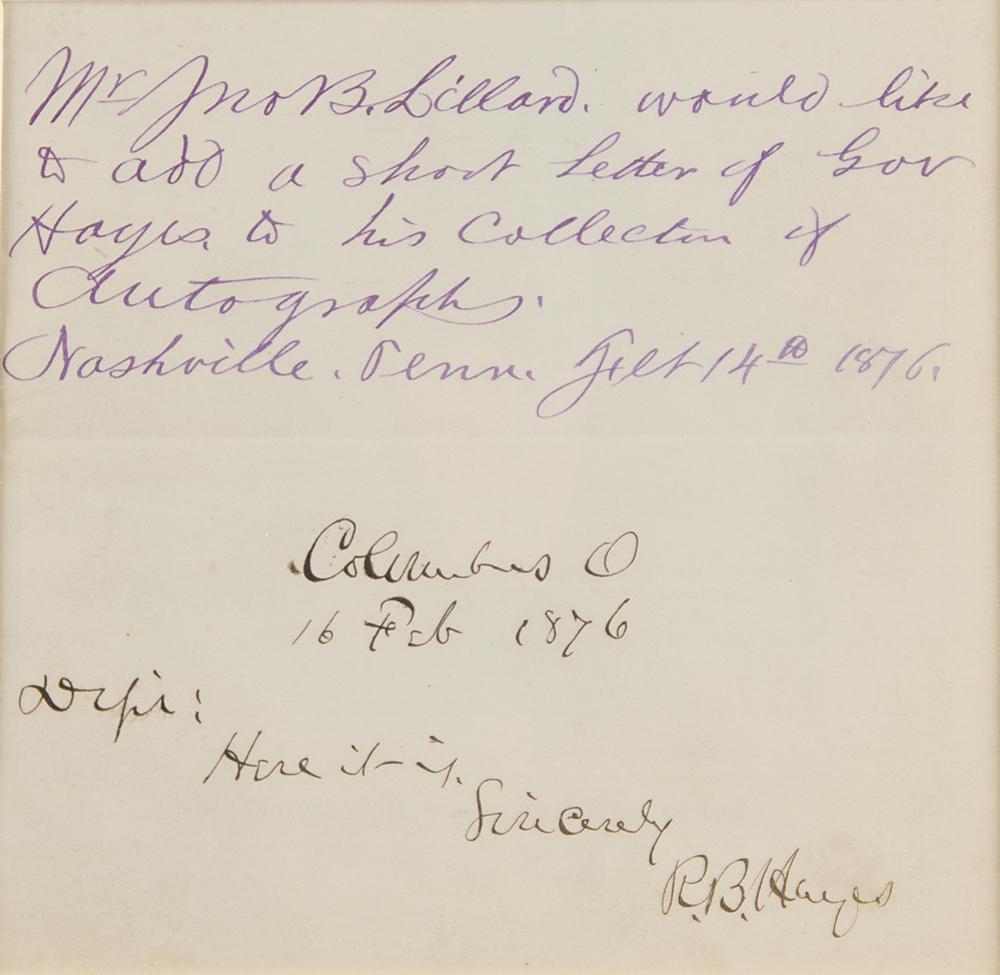 Mr Jno B. Lillard. would like
to add a short Letter of Gov
Hayes. to his Collection of
Autographs.
Nashville. Tenn. Feb 14th 1876.
Columbus O
16 Feb 1876
Dr Sir:
Here it is.
Sincerely
R.B. Hayes